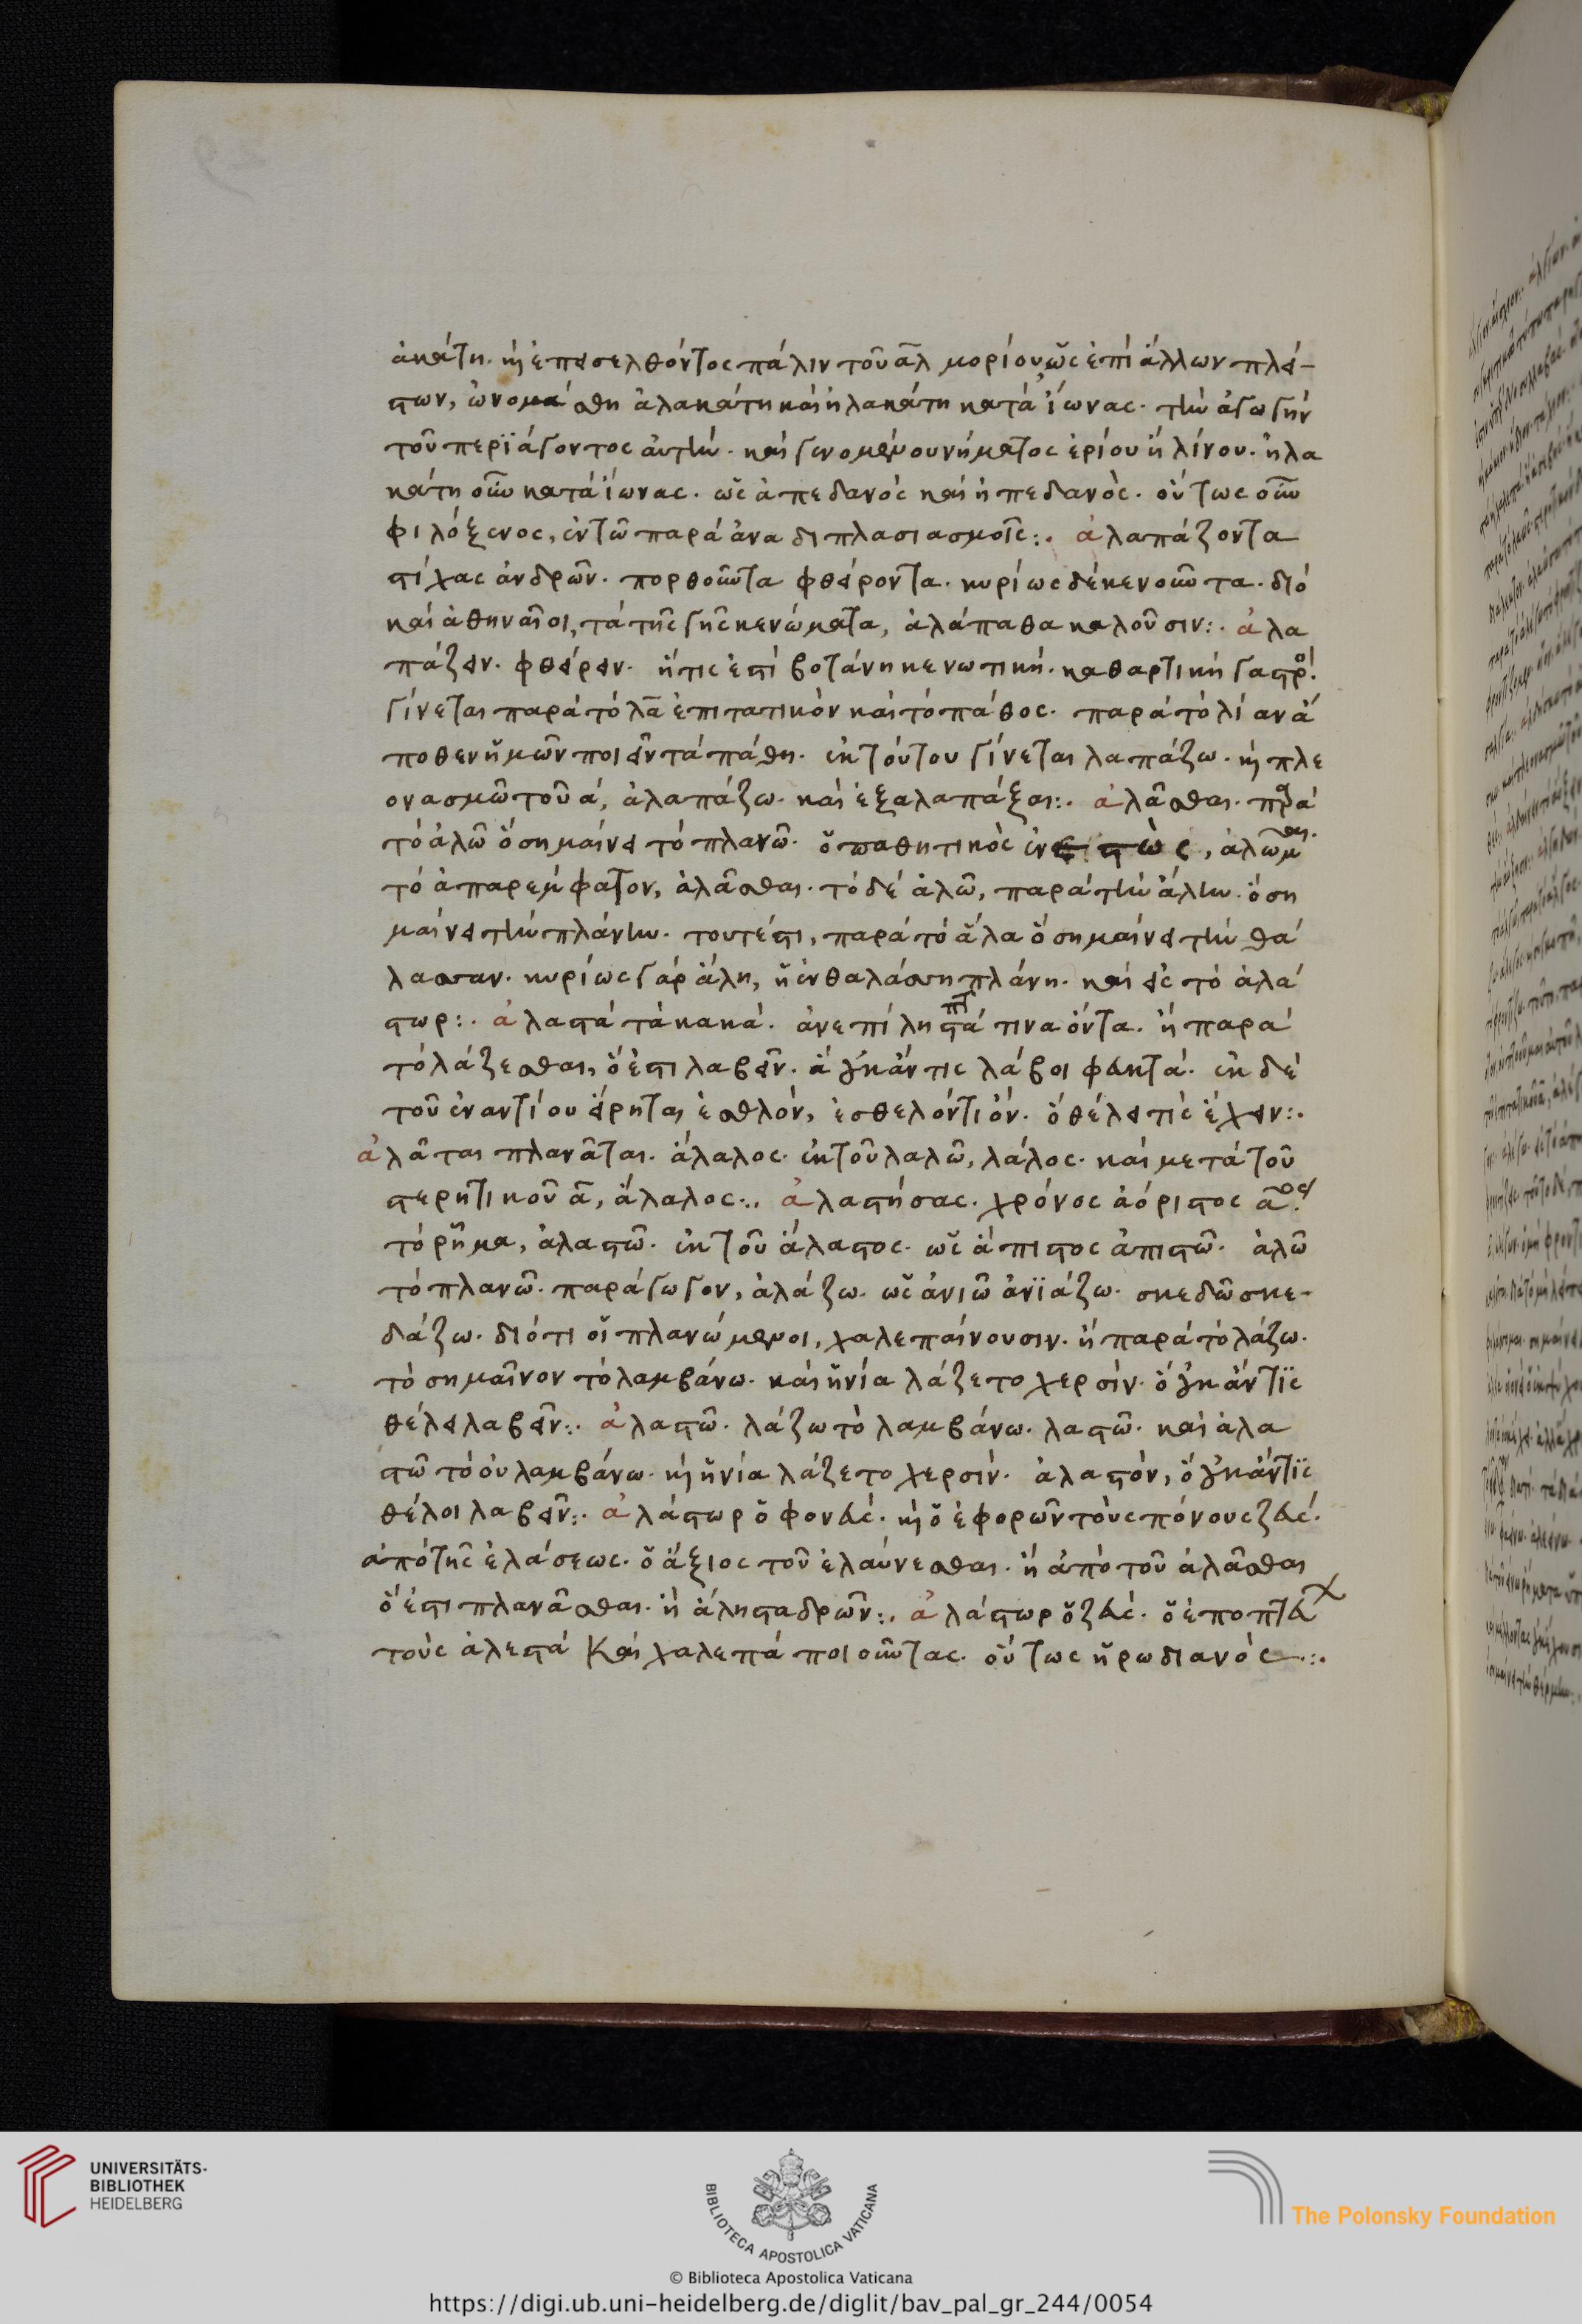 ἀκάτη. κ(αὶ) ἐπεισελθόντος πάλιν τοῦ ᾱλ μορίου ὡς ἐπὶ ἄλλων πλεί-
στων, ὠνομάσθη ἀλακάτη καὶ ἠλακάτη κατὰ ἴωνας. τὴν ἀγωγὴν
τοῦ περϊάγοντος αὐτήν. καὶ γενομένου νήματος ἐρίου ἢ λίνου. ἠλα
κάτη οὖν κατὰ ἴωνας. ὡς ἀπεδανὸς καὶ ἠπεδανὸς. οὕτως οὖν
φιλόξενος, ἐν τῶ παρὰ ἀναδιπλασιασμοῖς:. ἀλαπάζοντα
στίχας ἀνδρῶν. πορθοῦντα φθείροντα. κυρίως δὲ κενοῦντα. διὸ
καὶ ἀθηναῖοι, τὰ τῆς γῆς κενώματα, ἀλάπαθα καλοῦσιν:. ἀλα
πάζειν. φθείρειν. ἥτις ἐστὶ βοτάνη κενωτική. καθαρτικὴ γαστρό.
γίνεται παρὰ τὸ λα ἐπιτατικὸν καὶ τὸ πάθος. παρὰ τὸ λίαν ἀ
ποθεν ἡμῶν ποιεῖν τὰ πάθη. ἐκ τούτου γίνεται λαπάζω. κ(αὶ) πλε
ονασμῶ τοῦ ἀ, ἀλαπάζω. καὶ ἐξαλαπάξαι:. ἀλᾶσθαι. παρὰ
τὸ ἀλῶ ὃ σημαίνει τὸ πλανῶ. ὁ παθητικὸς ἐνεστὼς, ἀλῶμαι.
τὸ ἀπαρέμφατον, ἀλᾶσθαι. τὸ δὲ ἀλῶ, παρὰ τὴν ἄλην. ὃ ση
μαίνει τὴν πλάνην. τουτέστι, παρὰ τὸ ἅλα ὃ σημαίνει τὴν θά
λασσαν. κυρίως γὰρ ἄλη, ἡ ἐν θαλάσση πλάνη. καὶ εἰς τὸ ἀλά
στωρ:. ἀλαστὰ τὰ κακά. ἀνεπίληστά τινα ὄντα. ἢ παρὰ
τὸ λάζεσθαι, ὅ ἐστι λαβεῖν. ἃ οὐκ ἄν τις λάβοι φευκτά. ἐκ δὲ
τοῦ ἐναντίου εἴρηται ἐσθλόν, ἐσθελόν τι ὄν. ὃ θέλει τὶς ἔχειν:.
ἀλᾶται πλανᾶται. ἄλαλος. ἐκ τοῦ λαλῶ, λάλος. καὶ μετὰ τοῦ
στερητικοῦ ᾱ, ἄλαλος:. ἀλαστήσας. χρόνος ἀόριστος ᾱος
τὸ ρῆμα, ἀλαστῶ. ἐκ τοῦ ἄλαστος. ὡς ἄπιστος ἀπιστῶ. ἀλῶ
τὸ πλανῶ. παράγωγον, ἀλάζω. ὡς ἀνιῶ ἀνϊάζω. σκεδῶ σκε-
δάζω. διότι οἱ πλανώμενοι, χαλεπαίνουσιν. ἢ παρὰ τὸ λάζω.
τὸ σημαῖνον τὸ λαμβάνω. καὶ ἡνία λάζετο χερσίν. ὃ οὐκ ἄν τϊς
θέλει λαβεῖν:. ἀλαστῶ. λάζω τὸ λαμβάνω. λαστῶ. καὶ ἀλα
στῶ τὸ οὐ λαμβάνω. κ(αὶ) ἡνία λάζετο χερσίν. ἀλαστόν, ὃ οὐκ ἄν τϊς
θέλοι λαβεῖν:. ἀλάστωρ ὁ φονεύς. κ(αὶ) ὁ ἐφορῶν τοὺς πόνους ζεύς.
ἀπὸ τῆς ἐλάσεως. ὁ ἄξιος τοῦ ἐλαύνεσθαι. ἢ ἀπὸ τοῦ ἀλᾶσθαι
ὅ ἐστι πλανᾶσθαι. ἢ ἀληστα δρῶν:. ἀλάστωρ ὁ ζεύς. ὁ ἐποπτεύ
τοὺς ἀλεστὰ καὶ χαλεπὰ ποιοῦντας. οὕτως ἡρωδιανός:.
UNIVERSITÄTS-
BIBLIOTHEK
HEIDELBERG
BIBLIOTECA APOSTOLICA VATICANA
The Polonsky Foundation
© Biblioteca Apostolica Vaticana
https://digi.ub.uni-heidelberg.de/diglit/bav_pal_gr_244/0054